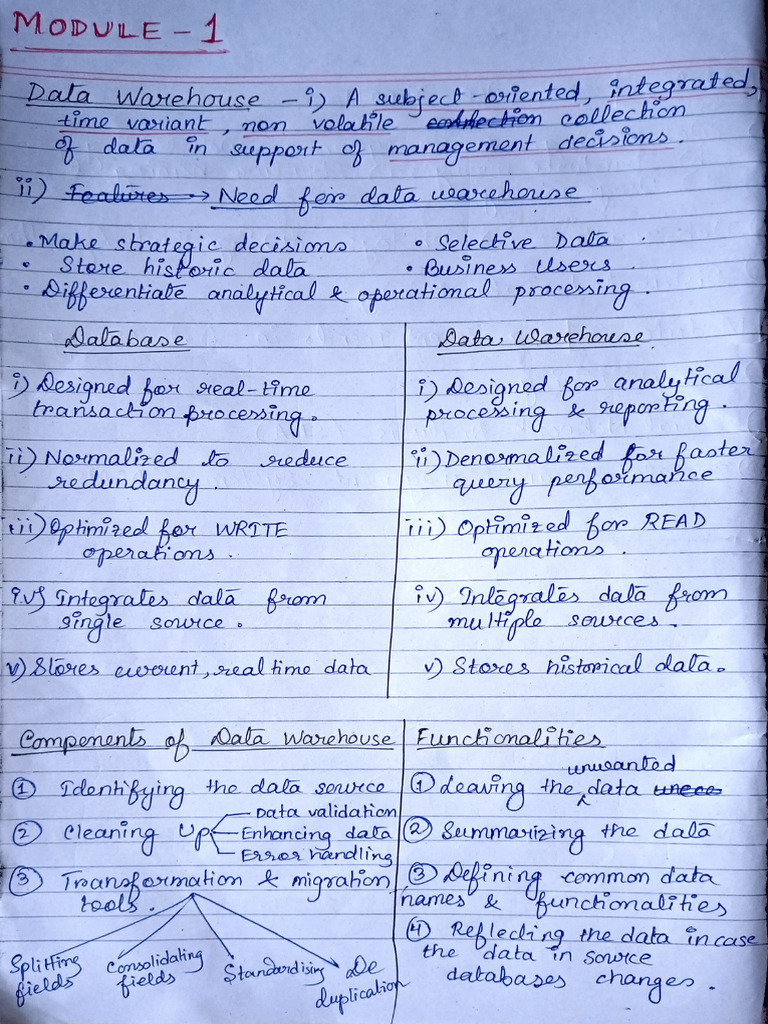 MODULE - 1
Data Warehouse - i) A subject-oriented, integrated,
time variant, non volatile collection
of data in support of management decisions.
ii) Features → Need for data warehouse
• Make strategic decisions
• Store historic data
• Selective Data
• Business Users.
• Differentiate analytical & operational processing.
Database
i) Designed for real-time
transaction processing.
ii) Normalized to reduce
redundancy.
iii) Optimized for WRITE
operations.
iv) Integrates data from
single source.
v) Stores current, real time data
Data Warehouse
i) Designed for analytical
processing & reporting.
ii) Denormalized for faster
query performance
iii) Optimized for READ
operations.
iv) Integrates data from
multiple sources.
v) Stores historical data.
Components of Data Warehouse
① Identifying the data source
② Cleaning Up
Data validation
Enhancing data
Error handling
③ Transformation & migration
tools.
Splitting
fields
Consolidating
fields
Standardising
De
duplication
Functionalities
unwanted
① Leaving the data
② Summarizing the data
③ Defining common data
names & functionalities
④ Reflecting the data incase
the data in source
databases changes.